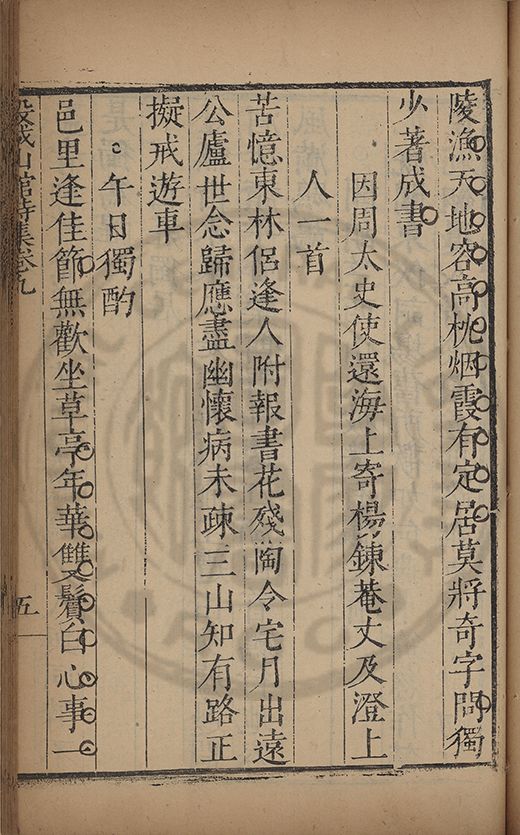 陵漁天地容高枕烟霞有定居莫將奇字問獨
少著成書
因周太史使還海上寄楊錬菴丈及澄上
人一首
苦憶東林侶逢人附報書花殘陶令宅月出遠
公廬世念歸應盡幽懷病未疎三山知有路正
擬戒遊車
午日獨酌
邑里逢佳節無歡坐草亭年華雙鬢白心事一
山館詩集卷九
五